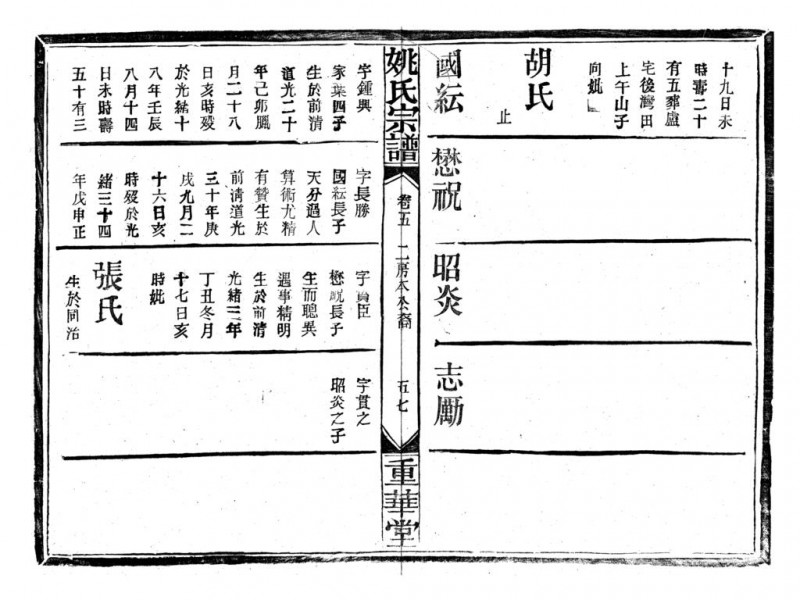 十九日未
時壽二十
有五葬廬
宅後灣田
上午山子
向妣
胡氏
止
國紜
懋祝
昭炎
志勵
姚氏宗譜
卷五
二房本公裔
五七
重華堂
字鍾興
家葉四子
生於前清
道光二十
年己卯風
月二十八
日亥時歿
於光緒十
八年壬辰
八月十四
日未時壽
五十有三
字長勝
國紜長子
天分過人
算術尤精
有贊生於
前清道光
三十年庚
戌九月二
十六日亥
時歿於光
緒三十四
年戊申正
字臣
懋祝長子
生而聰異
遇事精明
生於前清
光緒三年
丁丑冬月
十七日亥
時妣
張氏
生於同治
字貫之
昭炎之子